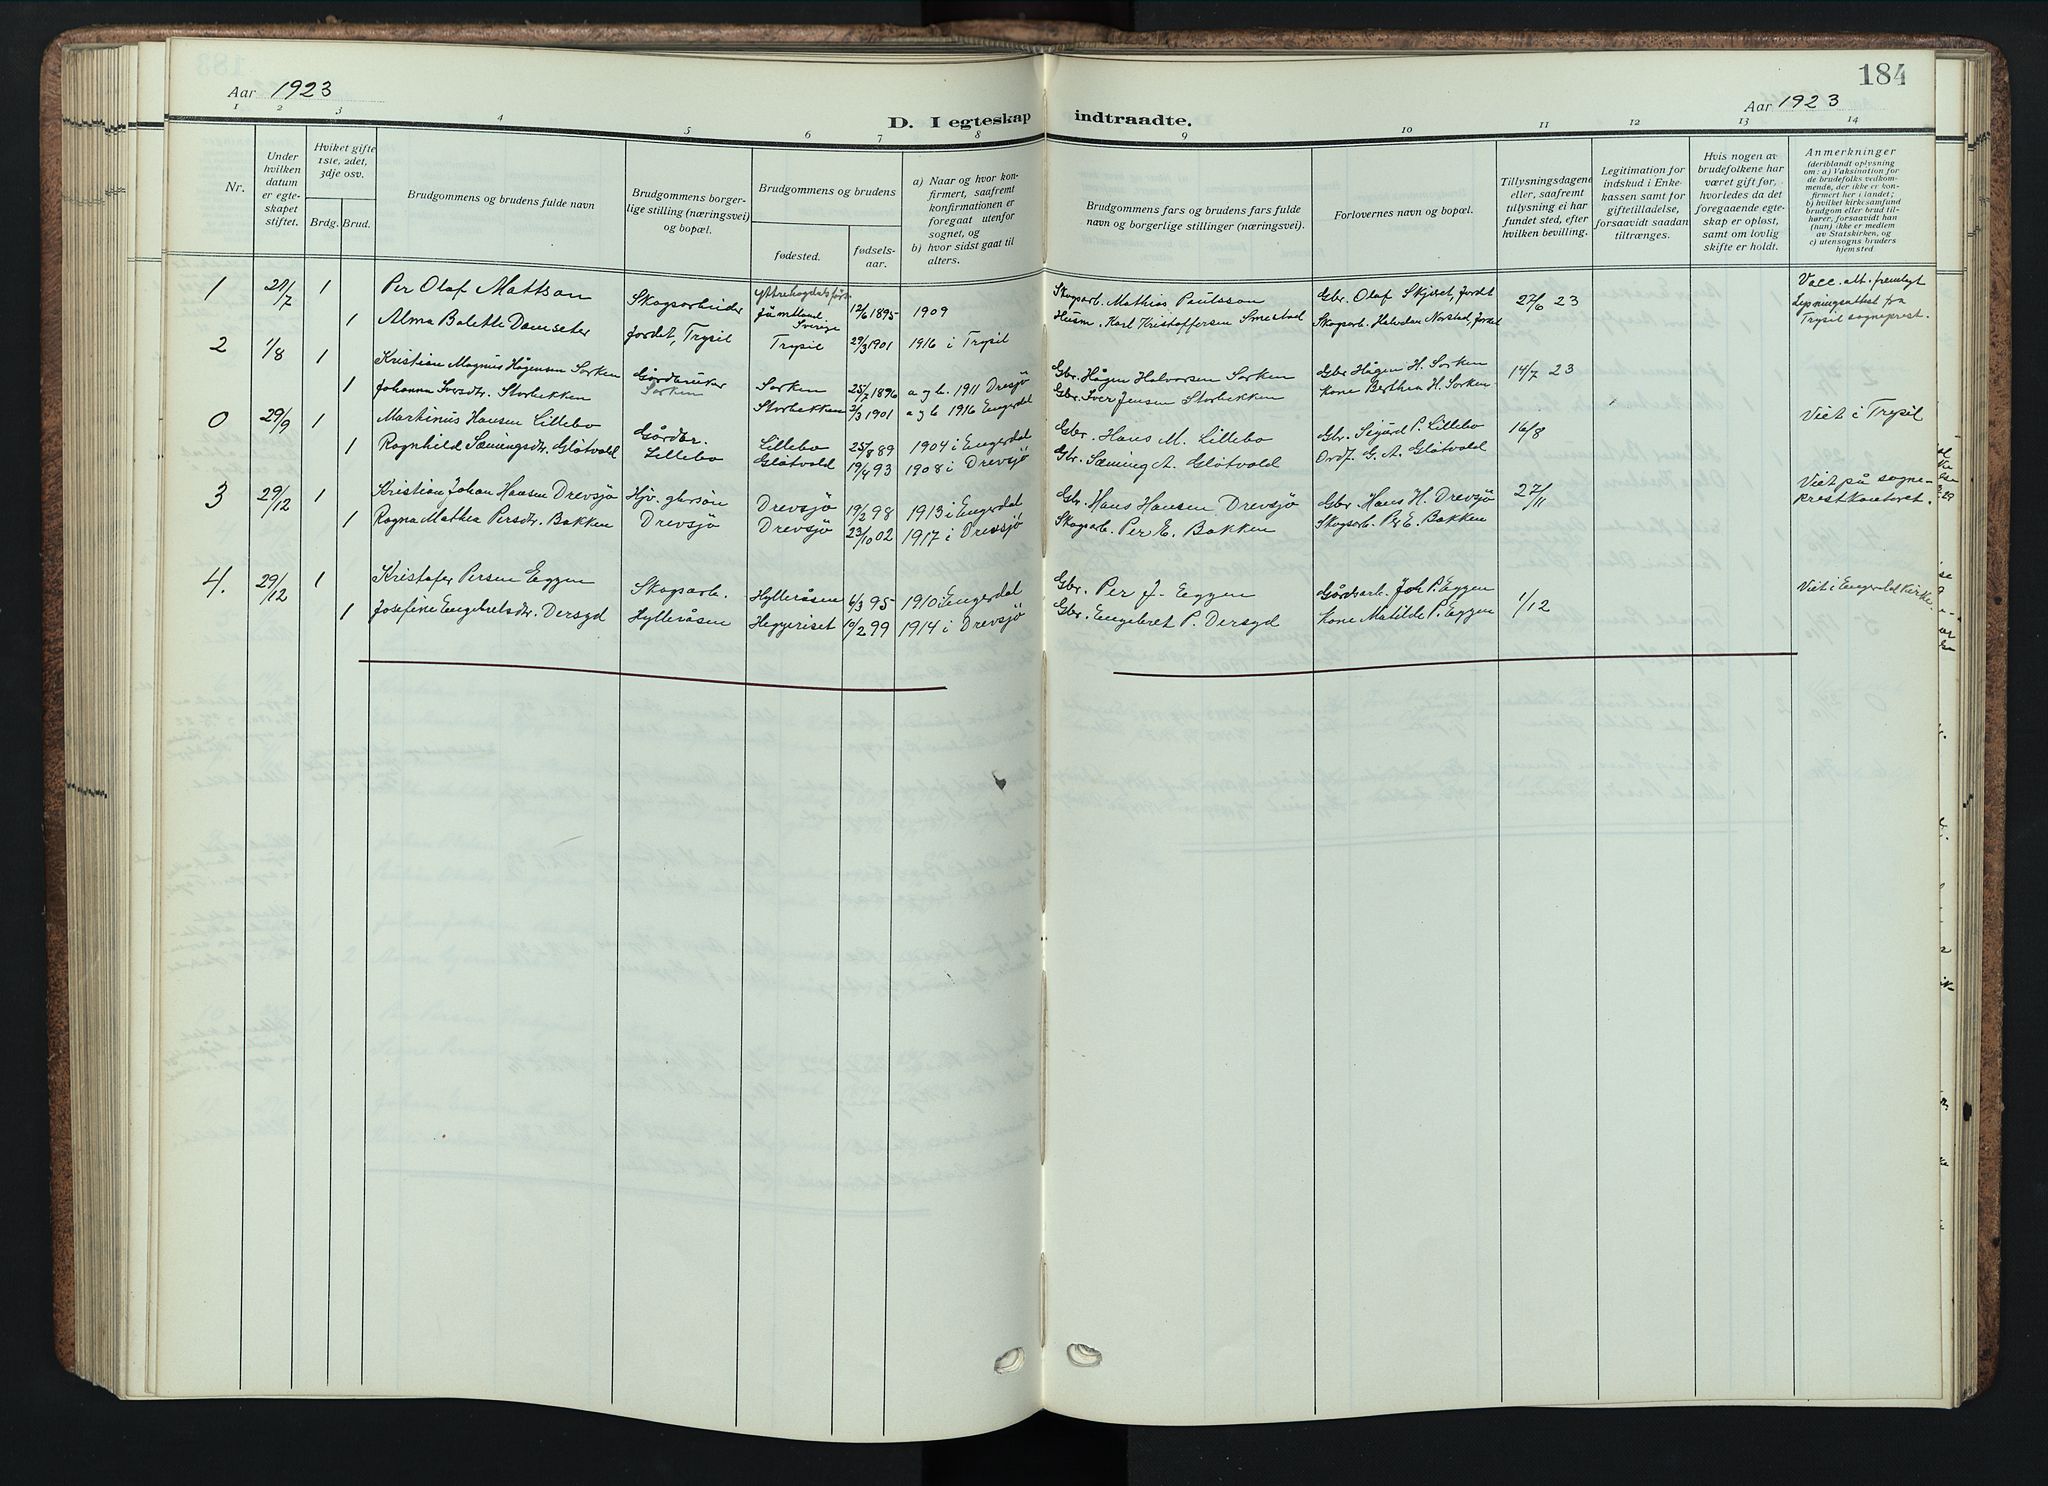 184
Aar 1923
Aar 1923
D. I egteskap indtraadte.
1 2 3 4 5 6 7 8 9 10 11 12 13 14
Nr.
Under hvilken datum er egte-skapet stiftet.
Hviket gifte 1ste, 2det, 3dje osv.
Brdg. Brud.
Brudgommens og brudens fulde navn
Brudgommens borger-lige stilling (næringsvei) og bopæl.
Brudgommens og brudens
fødested.
fødsels-aar.
a) Naar og hvor kon-firmert, saafremt konfirmationen er foregaat utenfor sognet, og
b) hvor sidst gaat til alters.
Brudgommens fars og brudens fars fulde navn og borgerlige stillinger (næringsvei).
Forlovernes navn og bopæl.
Tillysningsdagene eller, saafremt tillysning ei har fundet sted, efter hvilken bevilling.
Legitimation for indskud i Enke-kassen samt for giftetilladelse, forsaavidt saadan tiltrænges.
Hvis nogen av brudefolkene har været gift før, hvorledes da det foregaaende egte-skap er opløst, samt om lovlig skifte er holdt.
Anmerkninger
(deriblandt oplysning om: a) Vaksination for de brudefolks vedkom-mende, der ikke er kon-firmert her i landet; b) hvilket kirkesamfund brudgom eller brud til-hører, forsaavidt han (hun) ikke er medlem av Statskirken, og c) utensogns bruders hjemsted
1 1 Per Olaf Mattson Skogsarbeider Jämtland Sverige 12/6 1895 1909 Skogsarb. Mathias Paulsson Gbr. Olaf Skjæret, Jordet 27/6 23 Vacc. att. fremlagt
1 Alma Bolette Damseter Jordet, Trysil Trysil 29/3 1901 1916 i Trysil Husm. Karl Kristoffersen Smestad Skogsarb. Halvdan Norstad, Jordet Lysningsattest fra Trysil sogneprest.
2 1/8 1 Kristian Magnus Hågensen Sorken Gårdbruker Sorken Sorken 25/7 1896 a g b. 1911 Drevsjö Gbr. Hågen Halvorsen Sorken Gbr. Hågen H. Sorken 14/7 23
1 Johanna Iversdtr. Storbekken Storbekken 3/3 1901 a g b 1916 Engerdal Gbr. Iver Jensen Storbekken Kone Berthea H. Sorken
0 29/9 1 Martinus Hansen Lillebo Gårdbr. Lillebo 25/8 89 1904 i Engerdal Gbr. Hans M. Lillebo Gbr. Sigurd P. Lillebo 16/8 Viet i Trysil
1 Ragnhild Sæmingsdtr. Glötvold Lillebo Glötvold 19/4 93 1908 i Drevsjö Gbr. Sæming A. Glötvold Ordf. G. A. Glötvold
3 29/12 1 Kristian Johan Hansen Drevsjö Hjv. gbrsön Drevsjö 19/2 98 1913 i Engerdal Gbr. Hans Hansen Drevsjö Gbr. Hans H. Drevsjö 27/11 Viet på sogne-prestkontoret.
1 Ragna Mathea Persdtr. Bakken Drevsjö Drevsjö 23/10 02 1917 i Drevsjö Skogsarb. Per E. Bakken Skogsarb. Per E. Bakken
4. 29/12 1 Kristofer Persen Eggen Skogsarb. Hylleråsen 6/3 95 1910 Engerdal Gbr. Per J. Eggen Gårdsarb. Joh P. Eggen 1/12 Viet i Engerdal Kirke
1 Josefine Engebretsdtr. Dersyd Hylleråsen Heggeriset 10/2 99 1914 i Drevsjö Gbr. Engebret P. Dersyd Kone Matilde P. Eggen